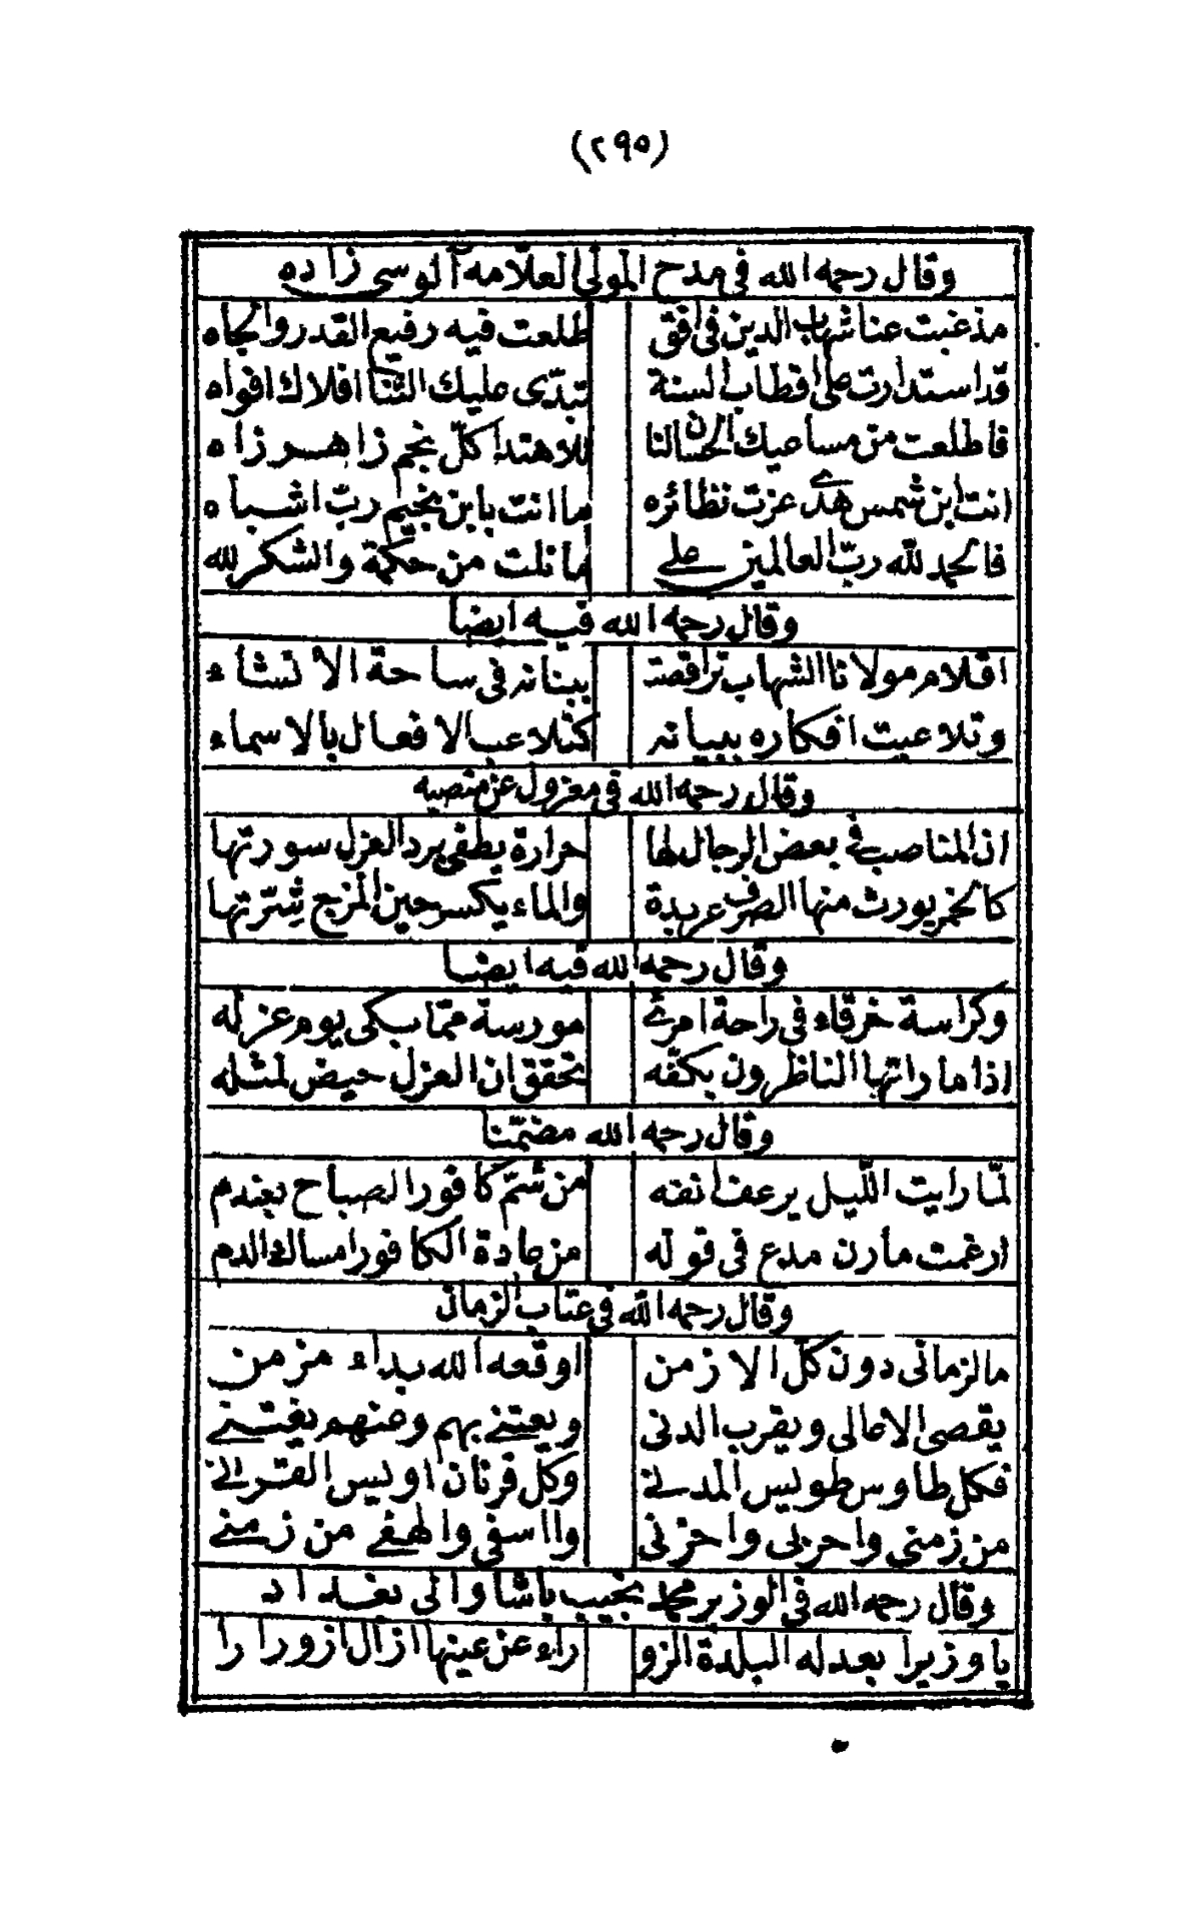 (٢٩٥)
وقال رحمه الله في مدح المولى العلامه آلوسى زاده
مذ غبت عنا شهاب الدين فى افق طلعت فيه رفيع القدر والجاه
قد استدارت على اقطاب السنة تبدّى عليك الثنا افلاك افواه
فاطلعت من مساعيك الحسان لنا للاهتدا كلّ نجم زاهر زاه
انت ابن شمس هدى عزت نظائره ما انت بابن نجيم ربّ اشباه
فالحمد لله ربّ العالمين على ما نلت من حكمة والشكر لله
وقال رحمه الله فيه ايضا
اقلام مولانا الشهاب تراقصت ببنانه فى ساحة الانشاء
وتلاعبت افكاره ببيانه كتلاعب الافعال بالاسماء
وقال رحمه الله فى معزول عن منصبه
ان المناصب فى بعض الرجال لها حرارة يطفى برد العزل سورتها
كالخمر يورث منها الصرف عربدة والماء يكسر حين المزج شرّتها
وقال رحمه الله فيه ايضا
وكراسة خرقاء فى راحة امرئ مورسة ممّا بكى يوم عزله
اذا ما راتها الناظرون بكفّه تحقق ان العزل حيض لمثله
وقال رحمه الله مضمّنا
لمّا رايت اللّيل يرعف انفه من شمّ كافور الصباح بعندم
ارغمت مارن مدع فى قوله من عادة الكافور امساك الدم
وقال رحمه الله فى عتاب الزمان
ما لزمانى دون كلّ الازمن اوقعه الله بداء مزمن
يقصى الاعالى ويقرب الدنى ويعتنى بهم وعنهم يغتنى
فكل طاوس طويس المدنى وكل قرنان اويس القرنى
من زمنى واحربى واحزنى وااسفى والهفى من زمنى
وقال رحمه الله فى الوزير محمد نجيب باشا والى بغداد
يا وزيرا بعدله البلدة الزو راء عن عينها ازال ازورارا